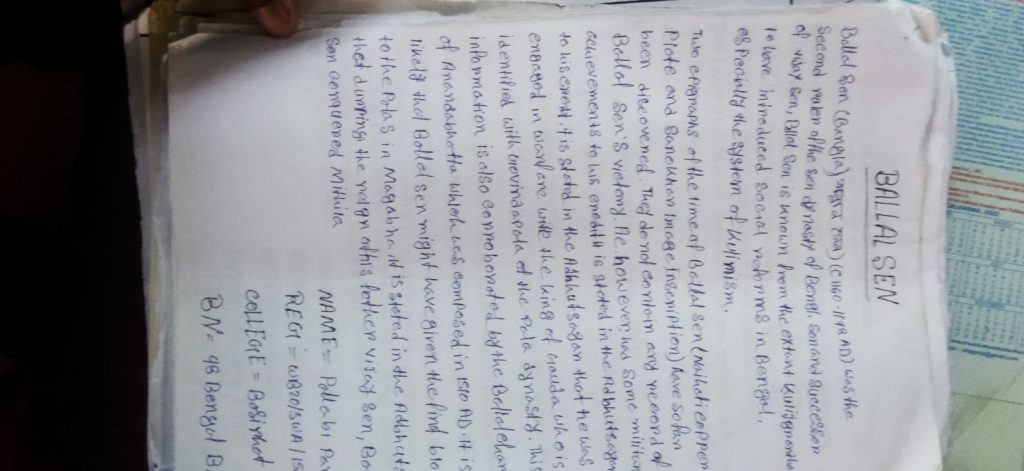 BALLAL SEN
Ballal Sen (Bangla) (C 1160-1178 AD) was the
Second rulen of the Sen dynasty of Bengl. son and successon
of vijay Sen, Ballal Sen is known from the extant
to have introduced social reforms in Bengal,
especially the system of Kulinism.
Two epigraphs of the time of Ballal sen (Naihati coppen
Plate and Sanokhan image inscniption) have so fan
been discovened. They do not contain any record of
Ballal Sen S victory He however had some militan
achievements to his credit It is stated in the Adbhutsagan
to his credit. It is stated in the Adbhutsagan that he was
engaged in warfare with the king of Gauda who is
identified with Govindapala of the Pala dynasty. This
information is also connobonated by the Ballalchan
of Anandabhatta which was composed in 1510 AD. It is
likely that Ballal sen might have given the final blo
to the Palas in Magadha. it is stated in the Adbhuts
that dunning the reign of his father vijay Sen, Ba
Sen conquened Mithila
NAME = Pallabi Pa
REGI = WB20/SWA/15
COLLEGE = Basirhat
BN = 48 Bengal B